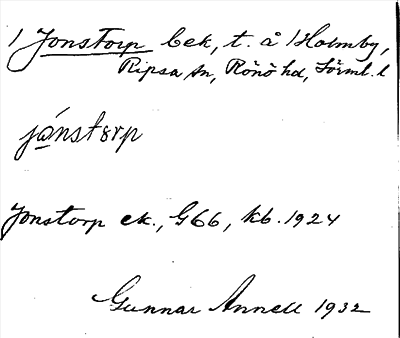 1 Jonstorp bek, t. å 1 Holmby,
Ripsa sn, Rönö hd, Sörml. l
jónstɔrp
Jonstorp ek., G66, kb. 1924
Gunnar Annell 1932